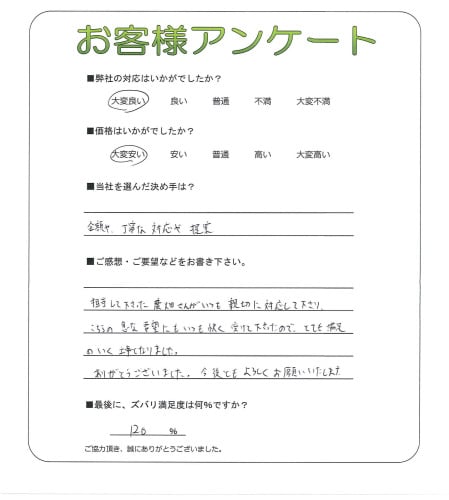 お客様アンケート
■弊社の対応はいかがでしたか？
大変良い 良い 普通 不満 大変不満
■価格はいかがでしたか？
大変安い 安い 普通 高い 大変高い
■当社を選んだ決め手は？
金額や、丁寧な対応や提案
■ご感想・ご要望などをお書き下さい。
担当して下さった農畑さんがいつも親切に対応して下さり、
こちらの急な要望にもいつも快く受けて下さったので、とても満足
のいく工事になりました。
ありがとうございました。今後ともよろしくお願いいたします
■最後に、ズバリ満足度は何%ですか？
120 %
ご協力頂き、誠にありがとうございました。